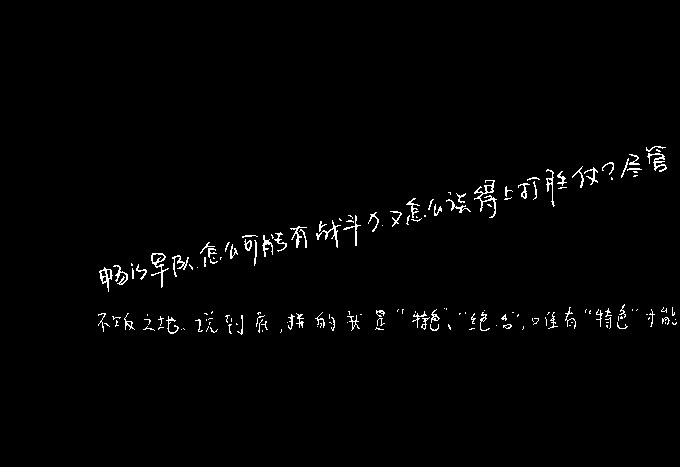 畅的军队,怎么可能有战斗力,又怎么谈得上打胜仗?尽管
不败之地。说到底,拼的就是“特色”、“绝活”,唯有“特色”才能